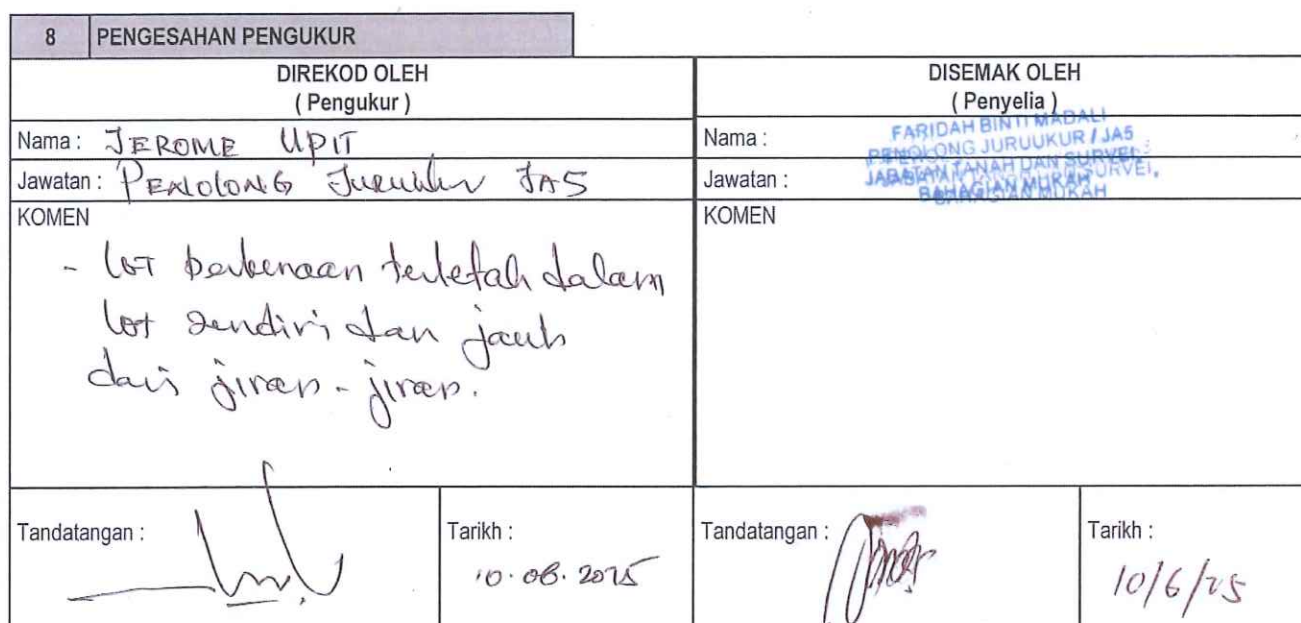 8 PENGESAHAN PENGUKUR
DIREKOD OLEH
( Pengukur )
Nama : JEROME UPIT
Jawatan : PENOLONG Juruukur JA5
KOMEN
- lot berkenaan terletak dalam
lot sendiri dan jauh
dari jiran-jiran.
Tandatangan :
Tarikh :
10.06.2025
DISEMAK OLEH
( Penyelia )
Nama :
FARIDAH BINTI MADALI
PENOLONG JURUUKUR / JA5
Jawatan :
JABATAN TANAH DAN SURVEI,
BAHAGIAN MUKAH
KOMEN
Tandatangan :
Tarikh :
10/6/25